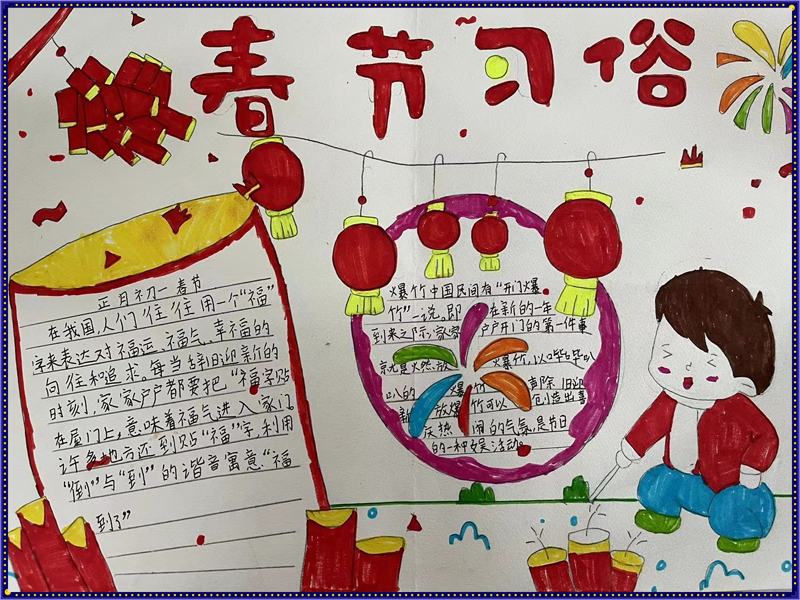 春节习俗
正月初一春节
在我国,人们往往用一个“福”
字来表达对福运、福气、幸福的
向往和追求。每当辞旧迎新的
时刻,家家户户都要把“福字贴
在屋门上,意味着福气进入家门
许多地方还到贴“福”字,利用
“倒”与“到”的谐音寓意“福
到了”
爆竹中国民间有“开门爆
竹”一说。即 在新的一年
到来之际,家家 户户开门的第一件事
就是火然放 爆竹,以哔
叭的 爆竹 除旧迎
新 放爆竹可以 创造出喜
庆热 闹的气氛,是节日
的一种娱活动。